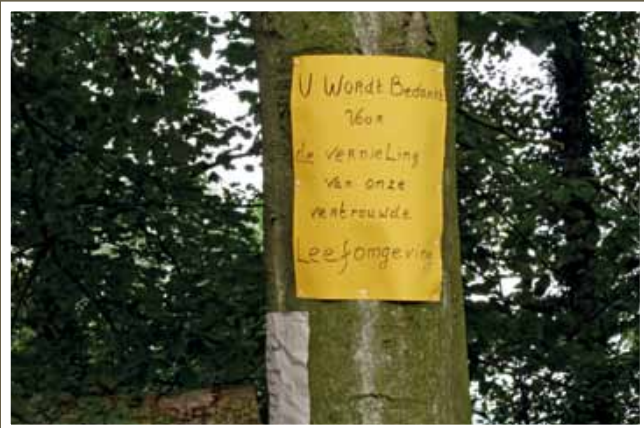 U Wordt Bedankt
Voor
de vernieling
van onze
vertrouwde
Leefomgeving